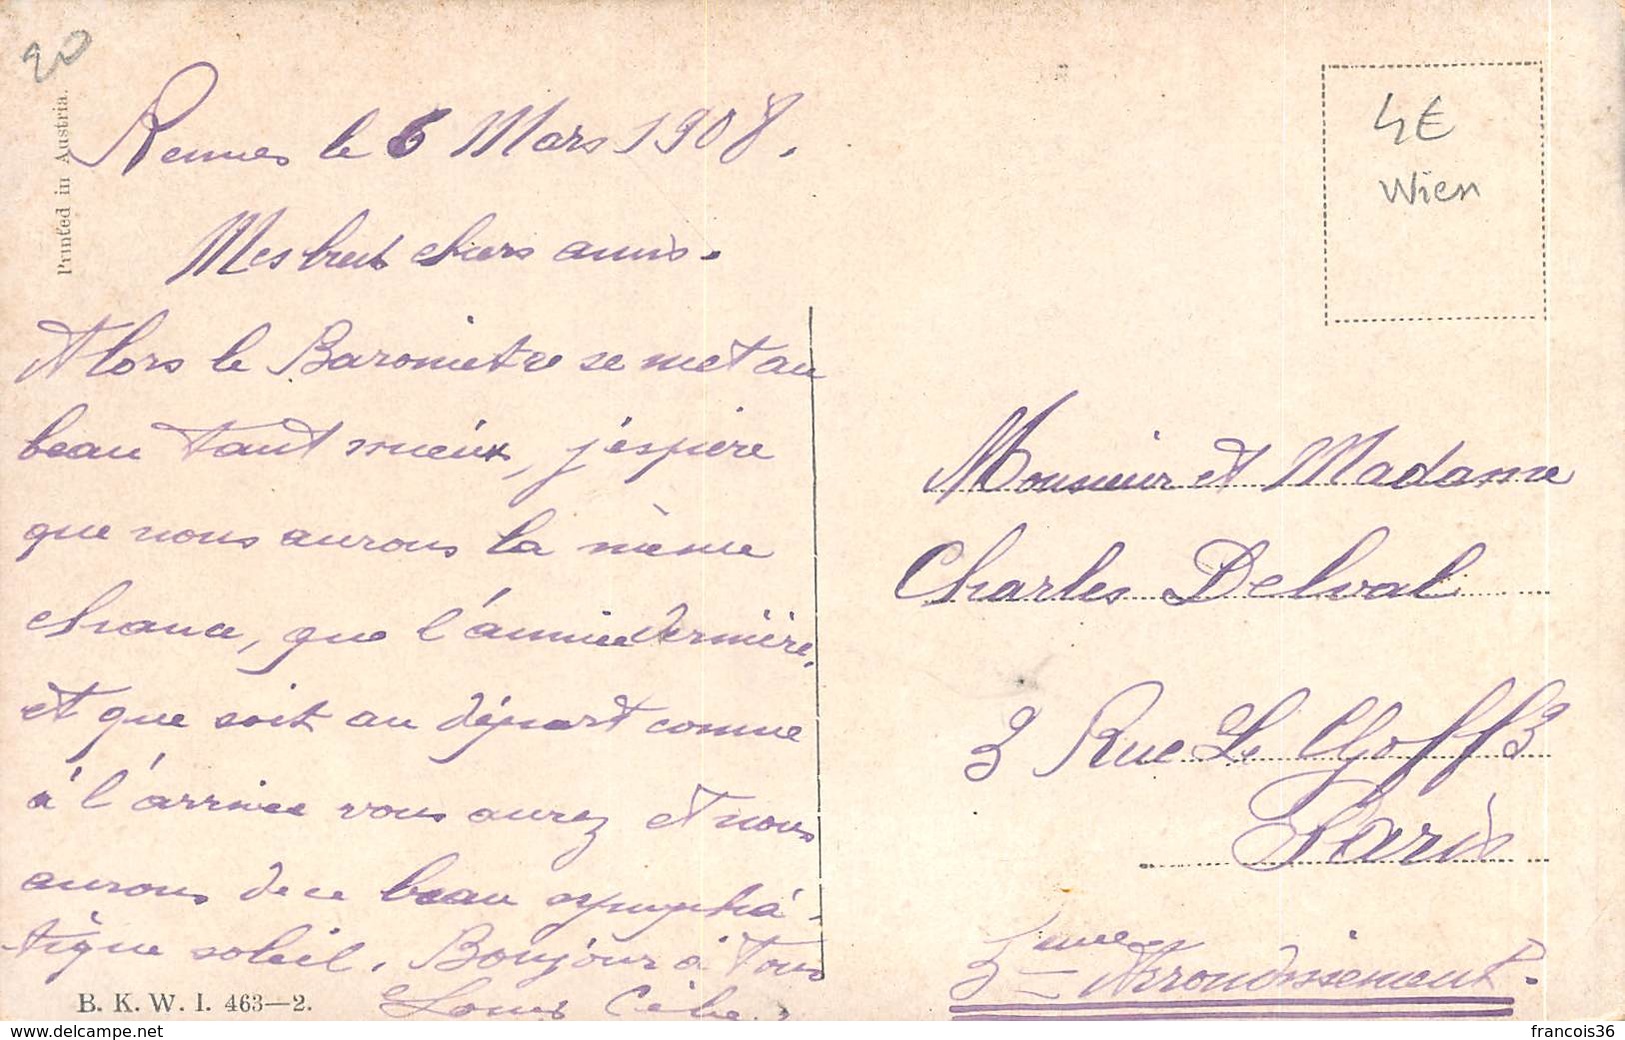 20
Printed in Austria.
Rennes le 6 Mars 1908.
Mes bien chers amis.
Alors le Baromètre se met au
beau tant mieux, j'espère
que nous aurons la même
chance, que l'année dernière,
et que soit au départ comme
à l'arrivée vous aurez et nous
aurons de ce beau symphá-
tique soleil. Bonjour à tous
Louis
B. K. W. I. 463—2.
4€
Wien
Monsieur et Madame
Charles Delval
3 Rue Le Goff 3
Paris
5eme Arrondissement.
francois36